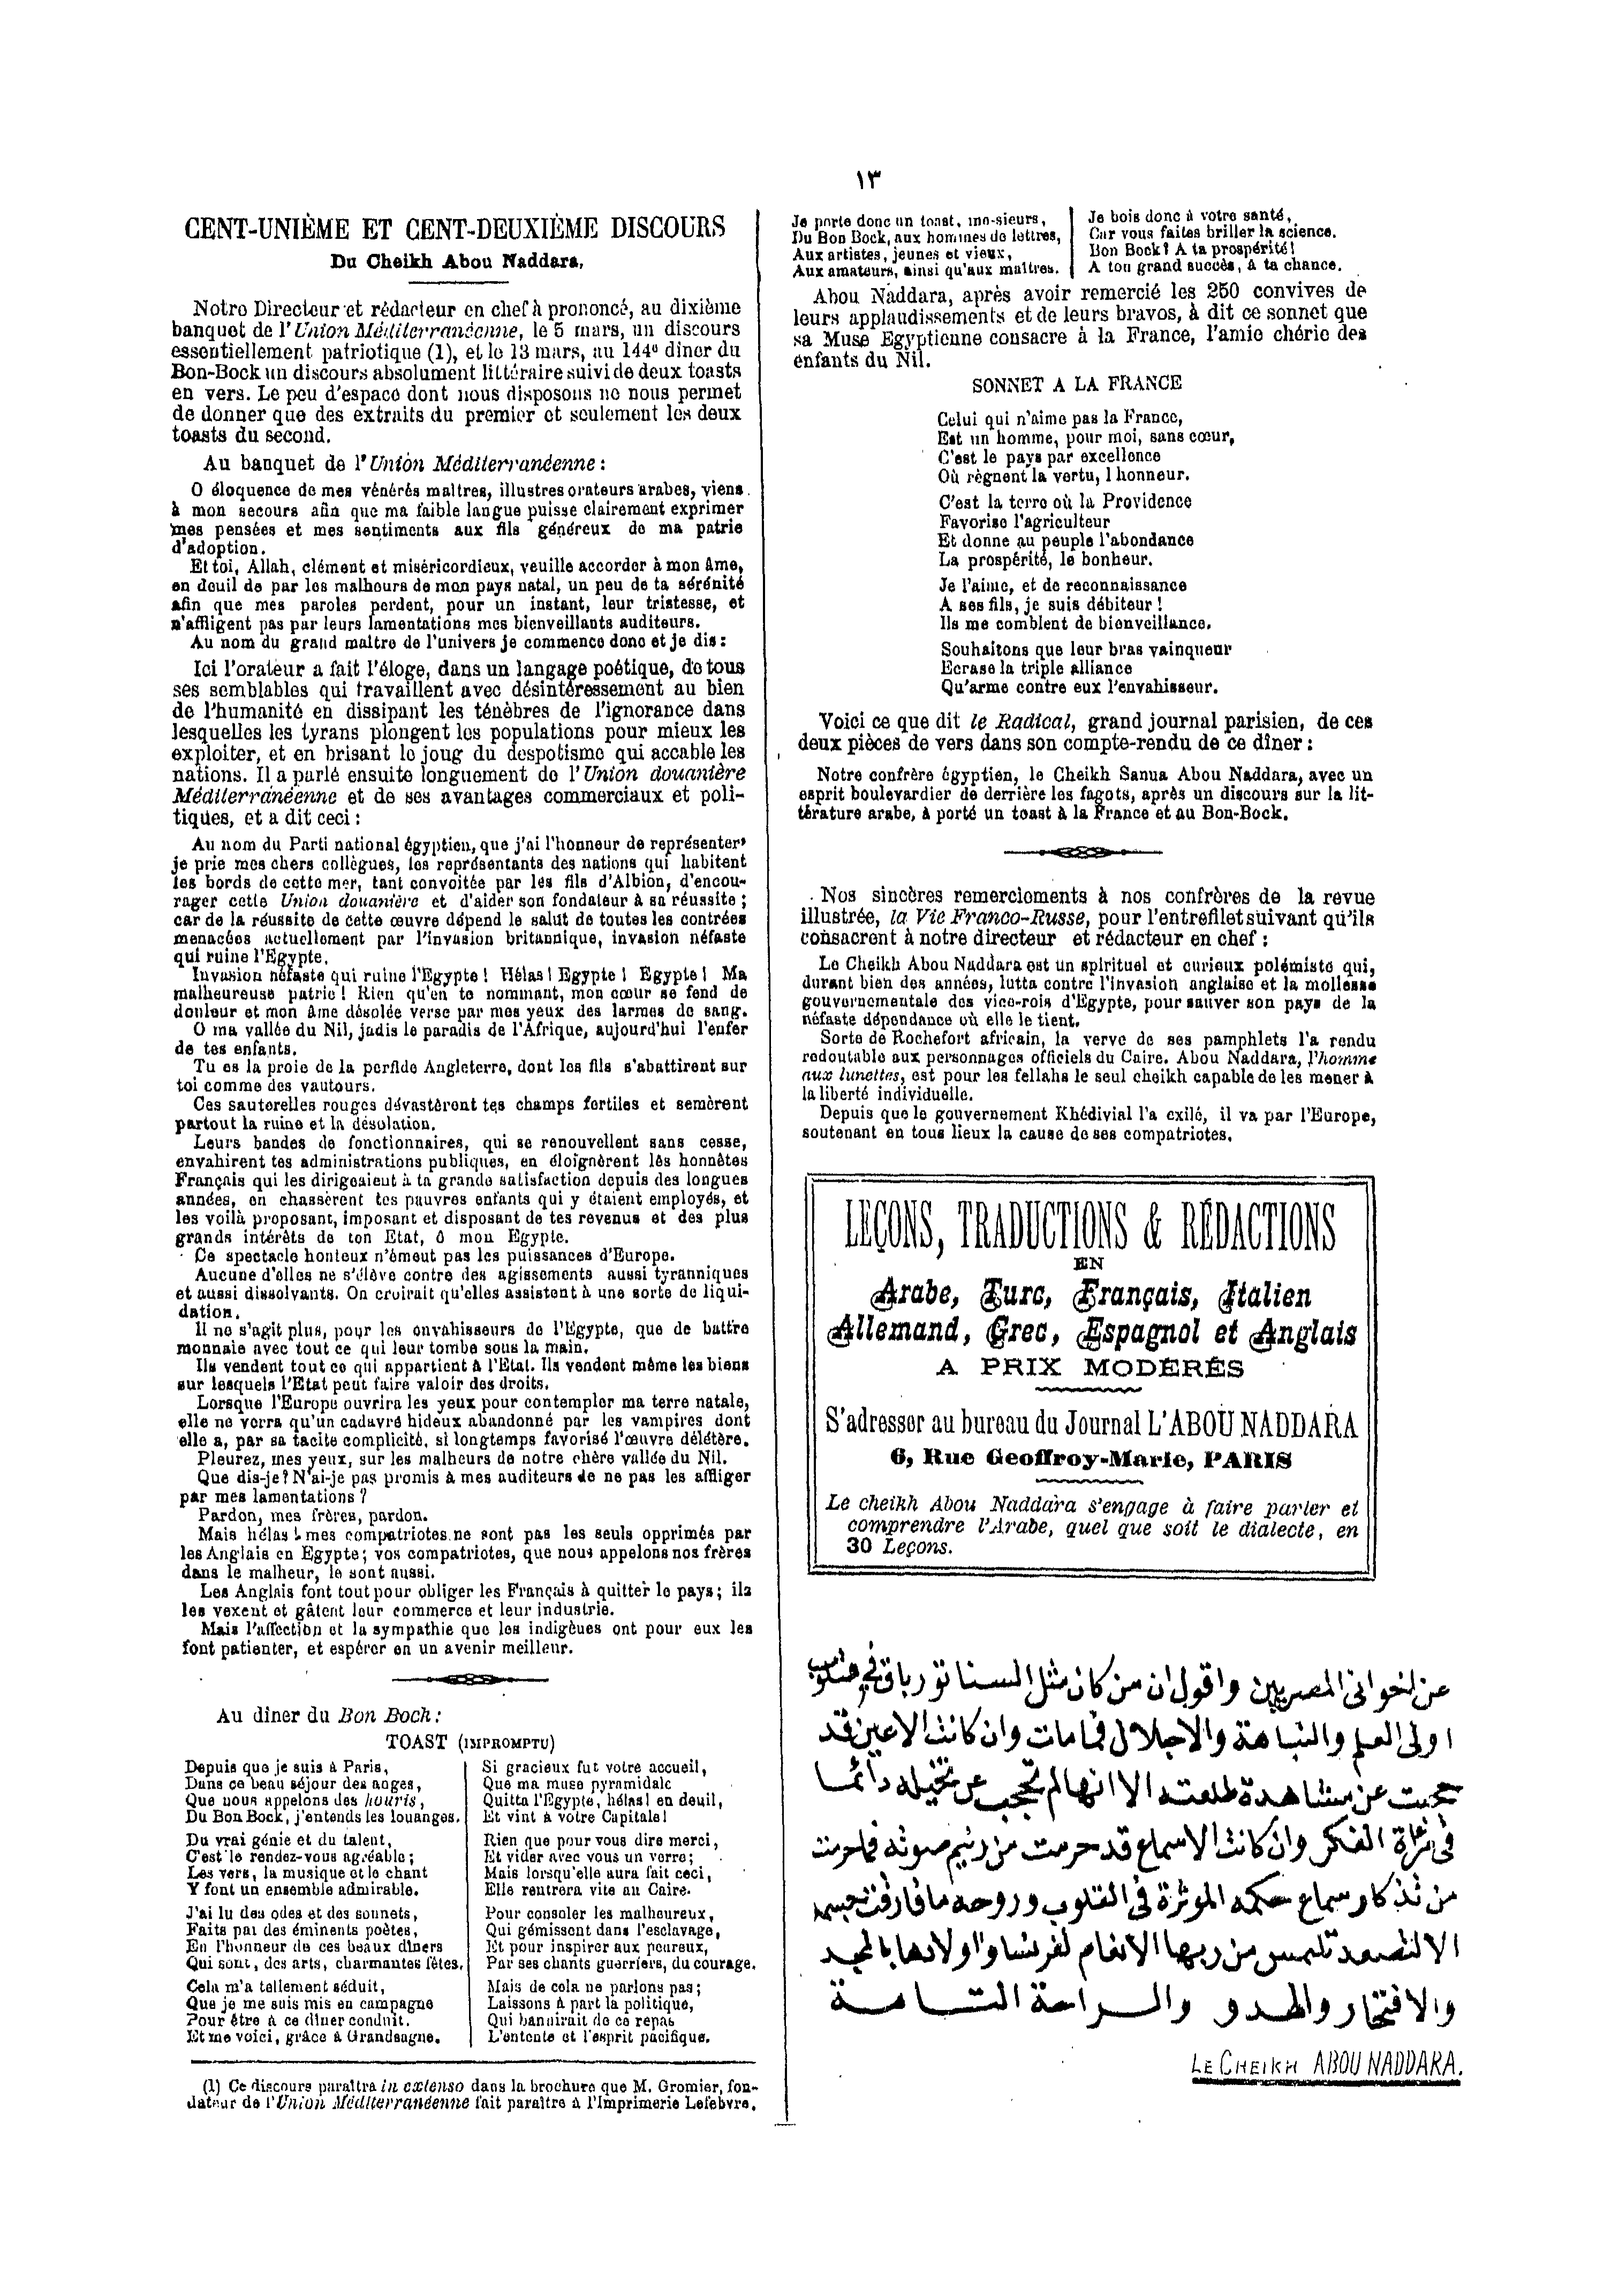 ١٣
CENT-UNIÈME ET CENT-DEUXIÈME DISCOURS
Du Cheikh Abou Naddara,
Notre Directeur et rédacteur en chef à prononcé, au dixième
banquet de l'Union Méditerranéenne, le 5 mars, un discours
essentiellement patriotique (1), et le 13 mars, au 144e diner du
Bon-Bock un discours absolument littéraire suivi de deux toasts
en vers. Le peu d'espace dont nous disposons ne nous permet
de donner que des extraits du premier et seulement les deux
toasts du second.
Au banquet de l'Union Méditerranéenne :
O éloquence de mes vénérés maîtres, illustres orateurs arabes, viens
à mon secours afin que ma faible langue puisse clairement exprimer
mes pensées et mes sentiments aux fils généreux de ma patrie
d'adoption.
Et toi, Allah, clément et miséricordieux, veuille accorder à mon âme,
en deuil de par les malheurs de mon pays natal, un peu de ta sérénité
afin que mes paroles perdent, pour un instant, leur tristesse, et
n'affligent pas par leurs lamentations mes bienveillants auditeurs.
Au nom du grand maître de l'univers je commence donc et je dis :
Ici l'orateur a fait l'éloge, dans un langage poétique, de tous
ses semblables qui travaillent avec désintéressement au bien
de l'humanité en dissipant les ténèbres de l'ignorance dans
lesquelles les tyrans plongent les populations pour mieux les
exploiter, et en brisant le joug du despotisme qui accable les
nations. Il a parlé ensuite longuement de l'Union douanière
Méditerranéenne et de ses avantages commerciaux et poli-
tiques, et a dit ceci :
Au nom du Parti national égyptien, que j'ai l'honneur de représenter,
je prie mes chers collègues, les représentants des nations qui habitent
les bords de cette mer, tant convoitée par les fils d'Albion, d'encou-
rager cette Union douanière et d'aider son fondateur à sa réussite ;
car de la réussite de cette œuvre dépend le salut de toutes les contrées
menacées actuellement par l'invasion britannique, invasion néfaste
qui ruine l'Egypte.
Invasion néfaste qui ruine l'Egypte ! Hélas ! Egypte ! Egypte ! Ma
malheureuse patrie ! Rien qu'en te nommant, mon cœur se fend de
douleur et mon âme désolée verse par mes yeux des larmes de sang.
O ma vallée du Nil, jadis le paradis de l'Afrique, aujourd'hui l'enfer
de tes enfants.
Tu es la proie de la perfide Angleterre, dont les fils s'abattirent sur
toi comme des vautours.
Ces sauterelles rouges dévastèrent tes champs fertiles et semèrent
partout la ruine et la désolation.
Leurs bandes de fonctionnaires, qui se renouvellent sans cesse,
envahirent tes administrations publiques, en éloignèrent les honnêtes
Français qui les dirigeaient à ta grande satisfaction depuis des longues
années, en chassèrent tes pauvres enfants qui y étaient employés, et
les voilà proposant, imposant et disposant de tes revenus et des plus
grands intérêts de ton Etat, ô mon Egypte.
Ce spectacle honteux n'émeut pas les puissances d'Europe.
Aucune d'elles ne s'élève contre des agissements aussi tyranniques
et aussi dissolvants. On croirait qu'elles assistent à une sorte de liqui-
dation.
Il ne s'agit plus, pour les envahisseurs de l'Egypte, que de battre
monnaie avec tout ce qui leur tombe sous la main.
Ils vendent tout ce qui appartient à l'Etat. Ils vendent même les biens
sur lesquels l'Etat peut faire valoir des droits.
Lorsque l'Europe ouvrira les yeux pour contempler ma terre natale,
elle ne verra qu'un cadavre hideux abandonné par les vampires dont
elle a, par sa tacite complicité, si longtemps favorisé l'œuvre délétère.
Pleurez, mes yeux, sur les malheurs de notre chère vallée du Nil.
Que dis-je ? N'ai-je pas promis à mes auditeurs de ne pas les affliger
par mes lamentations ?
Pardon, mes frères, pardon.
Mais hélas ! mes compatriotes ne sont pas les seuls opprimés par
les Anglais en Egypte ; vos compatriotes, que nous appelons nos frères
dans le malheur, le sont aussi.
Les Anglais font tout pour obliger les Français à quitter le pays ; ils
les vexent et gâtent leur commerce et leur industrie.
Mais l'affection et la sympathie que les indigènes ont pour eux les
font patienter, et espérer en un avenir meilleur.
Au dîner du Bon Bock :
TOAST (IMPROMPTU)
Depuis que je suis à Paris,
Dans ce beau séjour des anges,
Que nous appelons des houris,
Du Bon Bock, j'entends les louanges.
Du vrai génie et du talent,
C'est le rendez-vous agréable ;
Les vers, la musique et le chant
Y font un ensemble admirable.
J'ai lu des odes et des sonnets,
Faits par des éminents poètes,
En l'honneur de ces beaux dîners
Qui sont, des arts, charmantes fêtes.
Cela m'a tellement séduit,
Que je me suis mis en campagne
Pour être à ce dîner conduit.
Et me voici, grâce à Grandsagne.
Si gracieux fut votre accueil,
Que ma muse pyramidale
Quitta l'Egypte, hélas ! en deuil,
Et vint à votre Capitale !
Rien que pour vous dire merci,
Et vider avec vous un verre ;
Mais lorsqu'elle aura fait ceci,
Elle rentrera vite au Caire.
Pour consoler les malheureux,
Qui gémissent dans l'esclavage,
Et pour inspirer aux peureux,
Par ses chants guerriers, du courage.
Mais de cela ne parlons pas ;
Laissons à part la politique,
Qui bannirait de ce repas
L'entente et l'esprit pacifique.
(1) Ce discours paraîtra in extenso dans la brochure que M. Gromier, fon-
dateur de l'Union Méditerranéenne fait paraître à l'Imprimerie Lefebvre.
Je porte donc un toast, messieurs,
Du Bon Bock, aux hommes de lettres,
Aux artistes, jeunes et vieux,
Aux amateurs, ainsi qu'aux maîtres.
Je bois donc à votre santé,
Car vous faites briller la science.
Bon Bock ! A ta prospérité !
A ton grand succès, à ta chance.
Abou Naddara, après avoir remercié les 250 convives de
leurs applaudissements et de leurs bravos, à dit ce sonnet que
sa Muse Egyptienne consacre à la France, l'amie chérie des
enfants du Nil.
SONNET A LA FRANCE
Celui qui n'aime pas la France,
Est un homme, pour moi, sans cœur,
C'est le pays par excellence
Où règnent la vertu, l honneur.
C'est la terre où la Providence
Favorise l'agriculteur
Et donne au peuple l'abondance
La prospérité, le bonheur.
Je l'aime, et de reconnaissance
A ses fils, je suis débiteur !
Ils me comblent de bienveillance.
Souhaitons que leur bras vainqueur
Ecrase la triple alliance
Qu'arme contre eux l'envahisseur.
Voici ce que dit le Radical, grand journal parisien, de ces
deux pièces de vers dans son compte-rendu de ce dîner :
Notre confrère égyptien, le Cheikh Sanua Abou Naddara, avec un
esprit boulevardier de derrière les fagots, après un discours sur la lit-
térature arabe, à porté un toast à la France et au Bon-Bock.
Nos sincères remerciements à nos confrères de la revue
illustrée, la Vie Franco-Russe, pour l'entrefilet suivant qu'ils
consacrent à notre directeur et rédacteur en chef :
Le Cheikh Abou Naddara est un spirituel et curieux polémiste qui,
durant bien des années, lutta contre l'invasion anglaise et la mollesse
gouvernementale des vice-rois d'Egypte, pour sauver son pays de la
néfaste dépendance où elle le tient.
Sorte de Rochefort africain, la verve de ses pamphlets l'a rendu
redoutable aux personnages officiels du Caire. Abou Naddara, l'homme
aux lunettes, est pour les fellahs le seul cheikh capable de les mener à
la liberté individuelle.
Depuis que le gouvernement Khédivial l'a exilé, il va par l'Europe,
soutenant en tous lieux la cause de ses compatriotes.
LEÇONS, TRADUCTIONS & RÉDACTIONS
EN
Arabe, Turc, Français, Italien
Allemand, Grec, Espagnol et Anglais
A PRIX MODÉRÉS
S'adresser au bureau du Journal L'ABOU NADDARA
6, Rue Geoffroy-Marie, PARIS
Le cheikh Abou Naddara s'engage à faire parler et
comprendre l'Arabe, quel que soit le dialecte, en
30 Leçons.
عن اخوانى المصريين واقول ان من كان مثل السناتور باق فى قلوب
اولى العلم والنباهة والاجلال فما مات وان كانت الاعين قد
حجبت عن مشاهدة طلعته الا انها لم تحجب عن تخيله دائما
فى مرآة الفكر وان كانت الاسماع قد حرمت من رنيم صوته فما حرمت
من تذكار سماع حكمه الموثرة فى القلوب وروحه ما فارقت جسمه
الا لتصعد تلتمس من ربها الانعام لفرنسا واولادها بالمجد
والافتخار والهدو والراحة التامة
LE CHEIKH ABOU NADDARA.